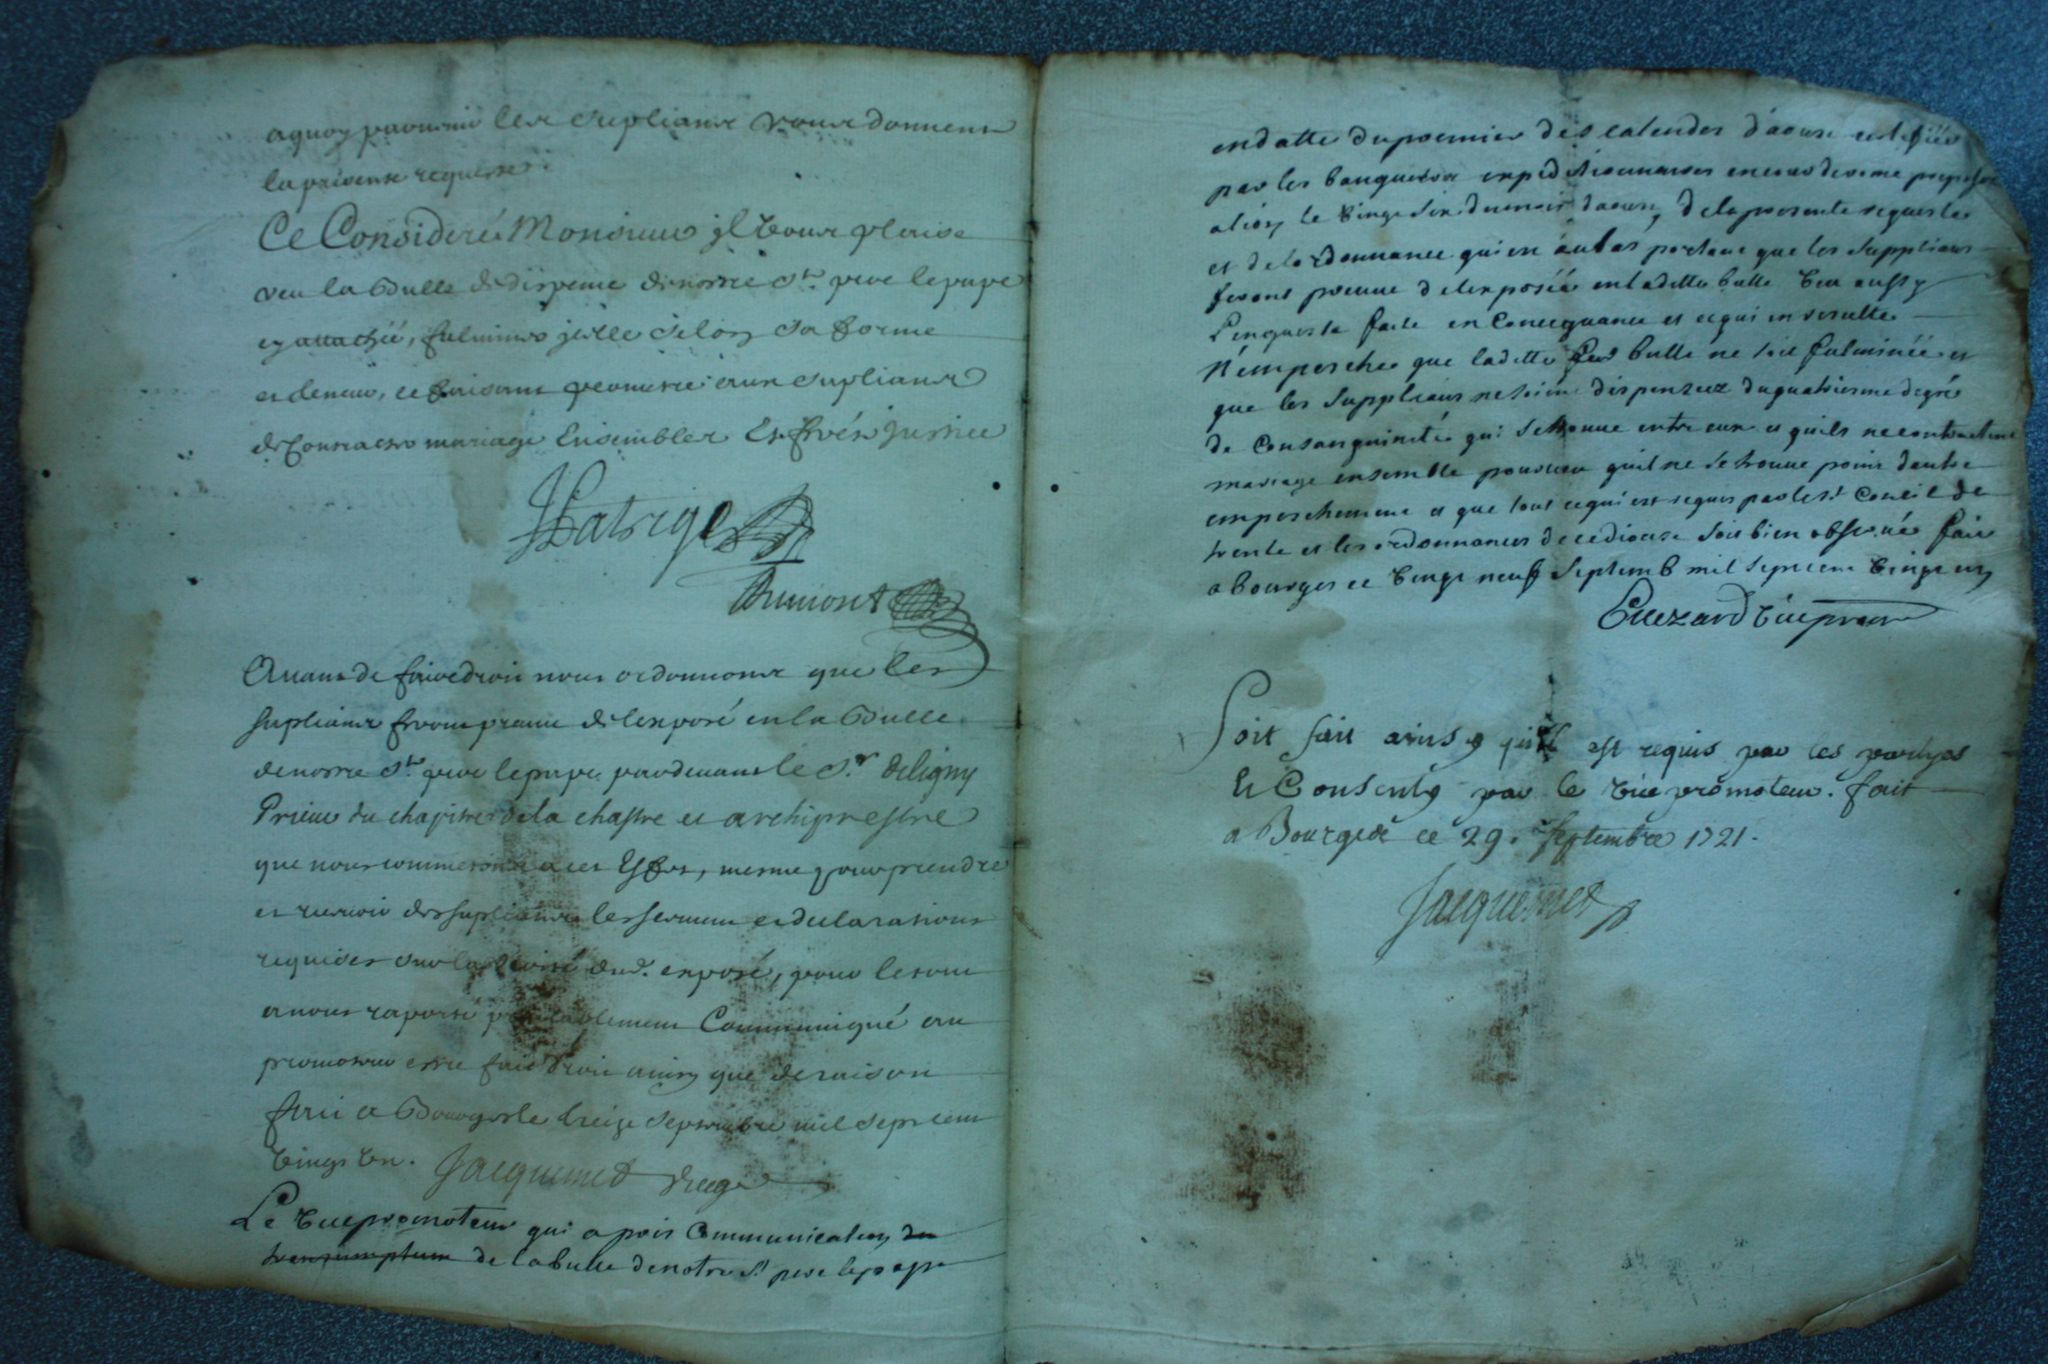 aquoy parvenir les suplians vous donnent
la présente requeste.
Ce Consideré Monsieur jl vous plaise
veu la Bulle de dispense de nostre St. pere le pape
cy attachée, fulminer jcelle selon sa forme
et teneur, ce faisant permettre aux suplians
de Contracter mariage Ensembles Et ferés justice
Patrige
Dumont
Avant de faire droit nous ordonnons que les
suplians feront preuve de lexposé en la Bulle
de nostre St. pere le pape pardevant le Sr. deligny
Prieur du chapitre de la chastre et archiprestre
que nous commettons a cet Effet, mesme pour prendre
et recevoir des suplians les serment et declarations
requises sur la verité dud. exposé, pour le tout
a nous raporté préalablement Communiqué au
promoteur estre fait droit ainsy que de raison
fait a Bourges le treize septembre mil sept cent
vingt un. Jacquemet
Le vice promoteur qui a pris Communication du
transumptum de la bulle de notre St pere le pape
en datte du premier des calendes d'aoust certifiée
par les banquiers expeditionnaires
le vingt six du mois daoust, de la presente requeste
et de lordonnance qui en au bas portant que les suppliants
feront preuve de lexposée en ladette bulle veu aussy
Lenqueste faite en Consequance et ce qui en resulte
N'empesche que ladette bulle ne soit fulminée et
que les suppliants ne soient dispensez du quatriesme degré
de Consanguinité qui se trouve entre eux et quils ne contractent
mariage ensemble pourveu quil ne se trouve point dautre
empeschement et que tout ce qui est requis par le St Concil de
trente et les ordonnances de ce diocese soit bien observé fait
a bourges ce vingt neuf septemb mil sept cent vingt un
vice promr
Soit fait ainsy qu'il est requis par les partyes
et Consenty par le vice promoteur. fait
a Bourges ce 29. septembre 1721.
Jacquemet